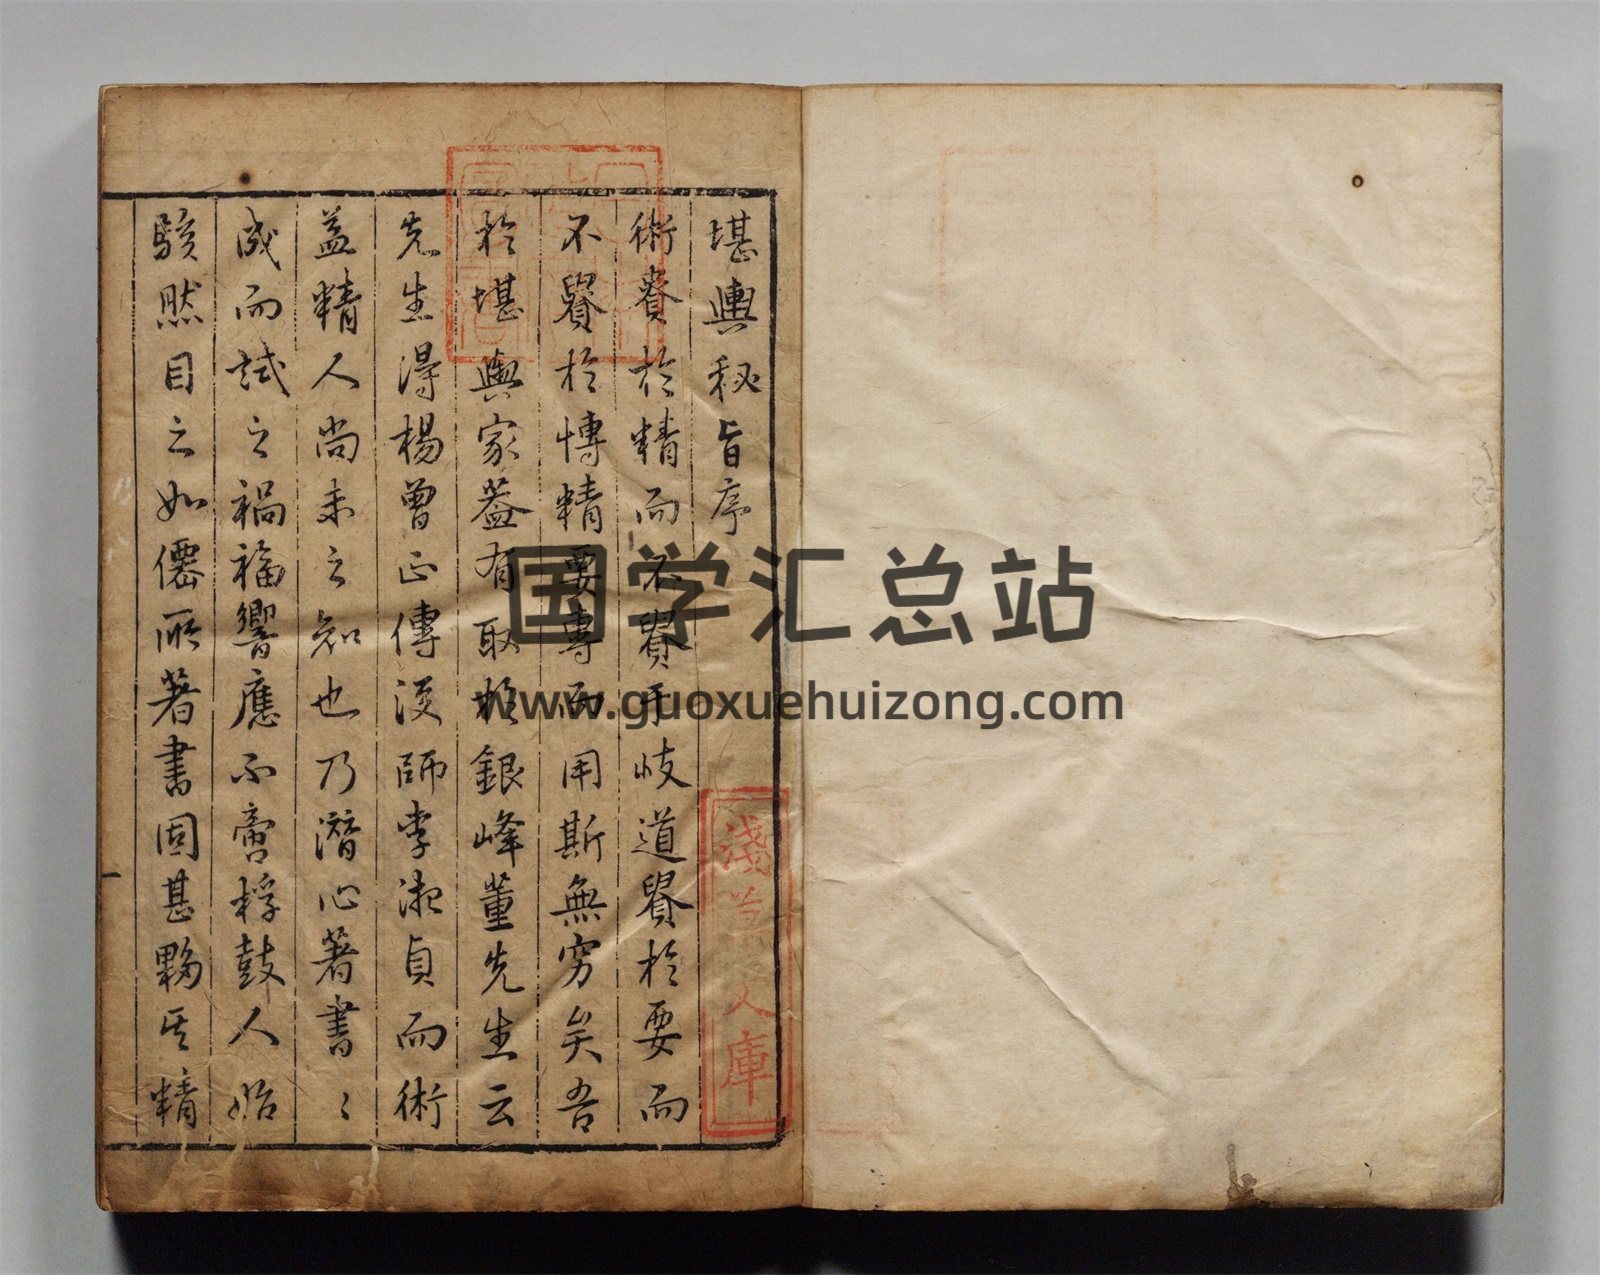 堪輿秘旨序
術貴於精而不貴于歧道貴於要而
不貴於博精要專而用斯無窮矣吾
於堪輿家蓋有取於銀峰董先生云
先生得楊曾正傳復師李淑貞而術
益精人尚未之知也乃潛心著書〻
成而試之禍福響應不啻桴鼓人始
駭然目之如僊所著書固甚夥其精
淺草文庫
国学汇总站
www.guoxuehuizong.com